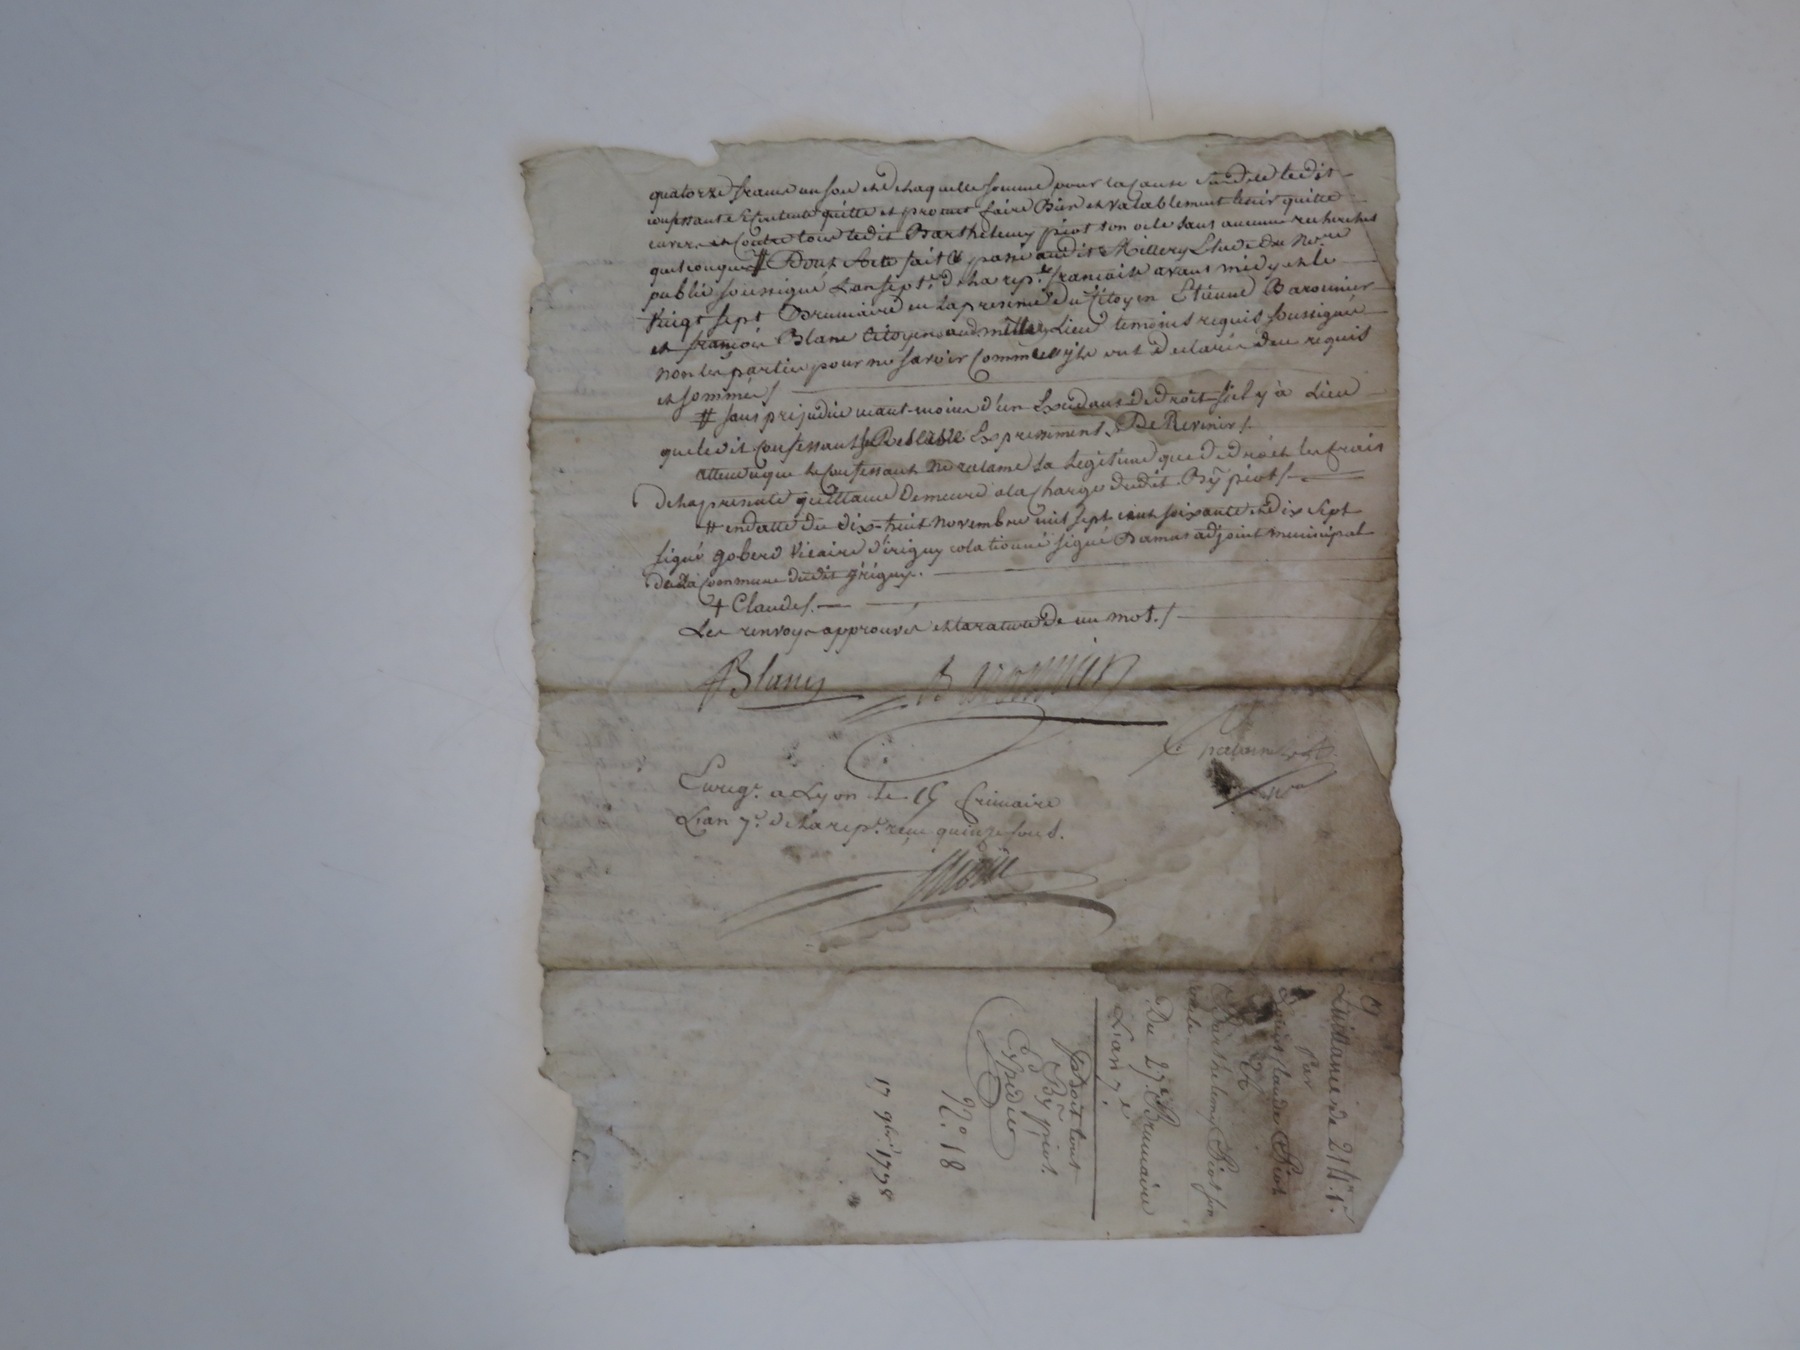 quatorze francs un sou et de laquelle somme pour la cause susdite ledit
confessant Content quitte et promet faire Bien et valablement tenir quitte
envers et Contre tous ledit Barthelemy piot son oncle sans aucune recherches
quelconques # Dont Acte fait & passé audit Millery Etude du No.re
public soussigné L'an sept.e de la rep.e francaise avant midy et le
Vingt sept Brumaire en la presence du Citoyen Etienne Baronnier
et françois Blanc Citoyens aud. millery Lieu temoins requis soussignés
non les parties pour ne savoir Comme ils ont declarés de ce requis
et sommés /
# sans prejudice neant-moins d'un Excedant de droit s'il y à Lieu
que ledit confessant se Reserve Expressement De Revenir /.
attendu que le Confessant ne reclame sa Legitime que de droit les frais
de la presente quittance demeure a la Charge dudit By piot /.
# en datte du dix-huit novembre mil sept cent soixante et dix sept
signé goberd Vicaire d'irigny colationné signé Damas adjoint municipal
de La Commune dudit irigny.
+ Claude /.
Les renvoys approuvés et la rature de un mot. /
Blanc Baronnier
Enreg.é a Lyon le 15 frimaire
L'an 7.e de la rep.e reçu quinze sous.
Quittance de 214.# 1.s
Par
Claude Piot
A
Barthelemy Piot son
oncle
Du 27.e Brumaire
L'an 7.e
Doit tout
By piot.
Expedié
N.° 18
17 9bre 1798